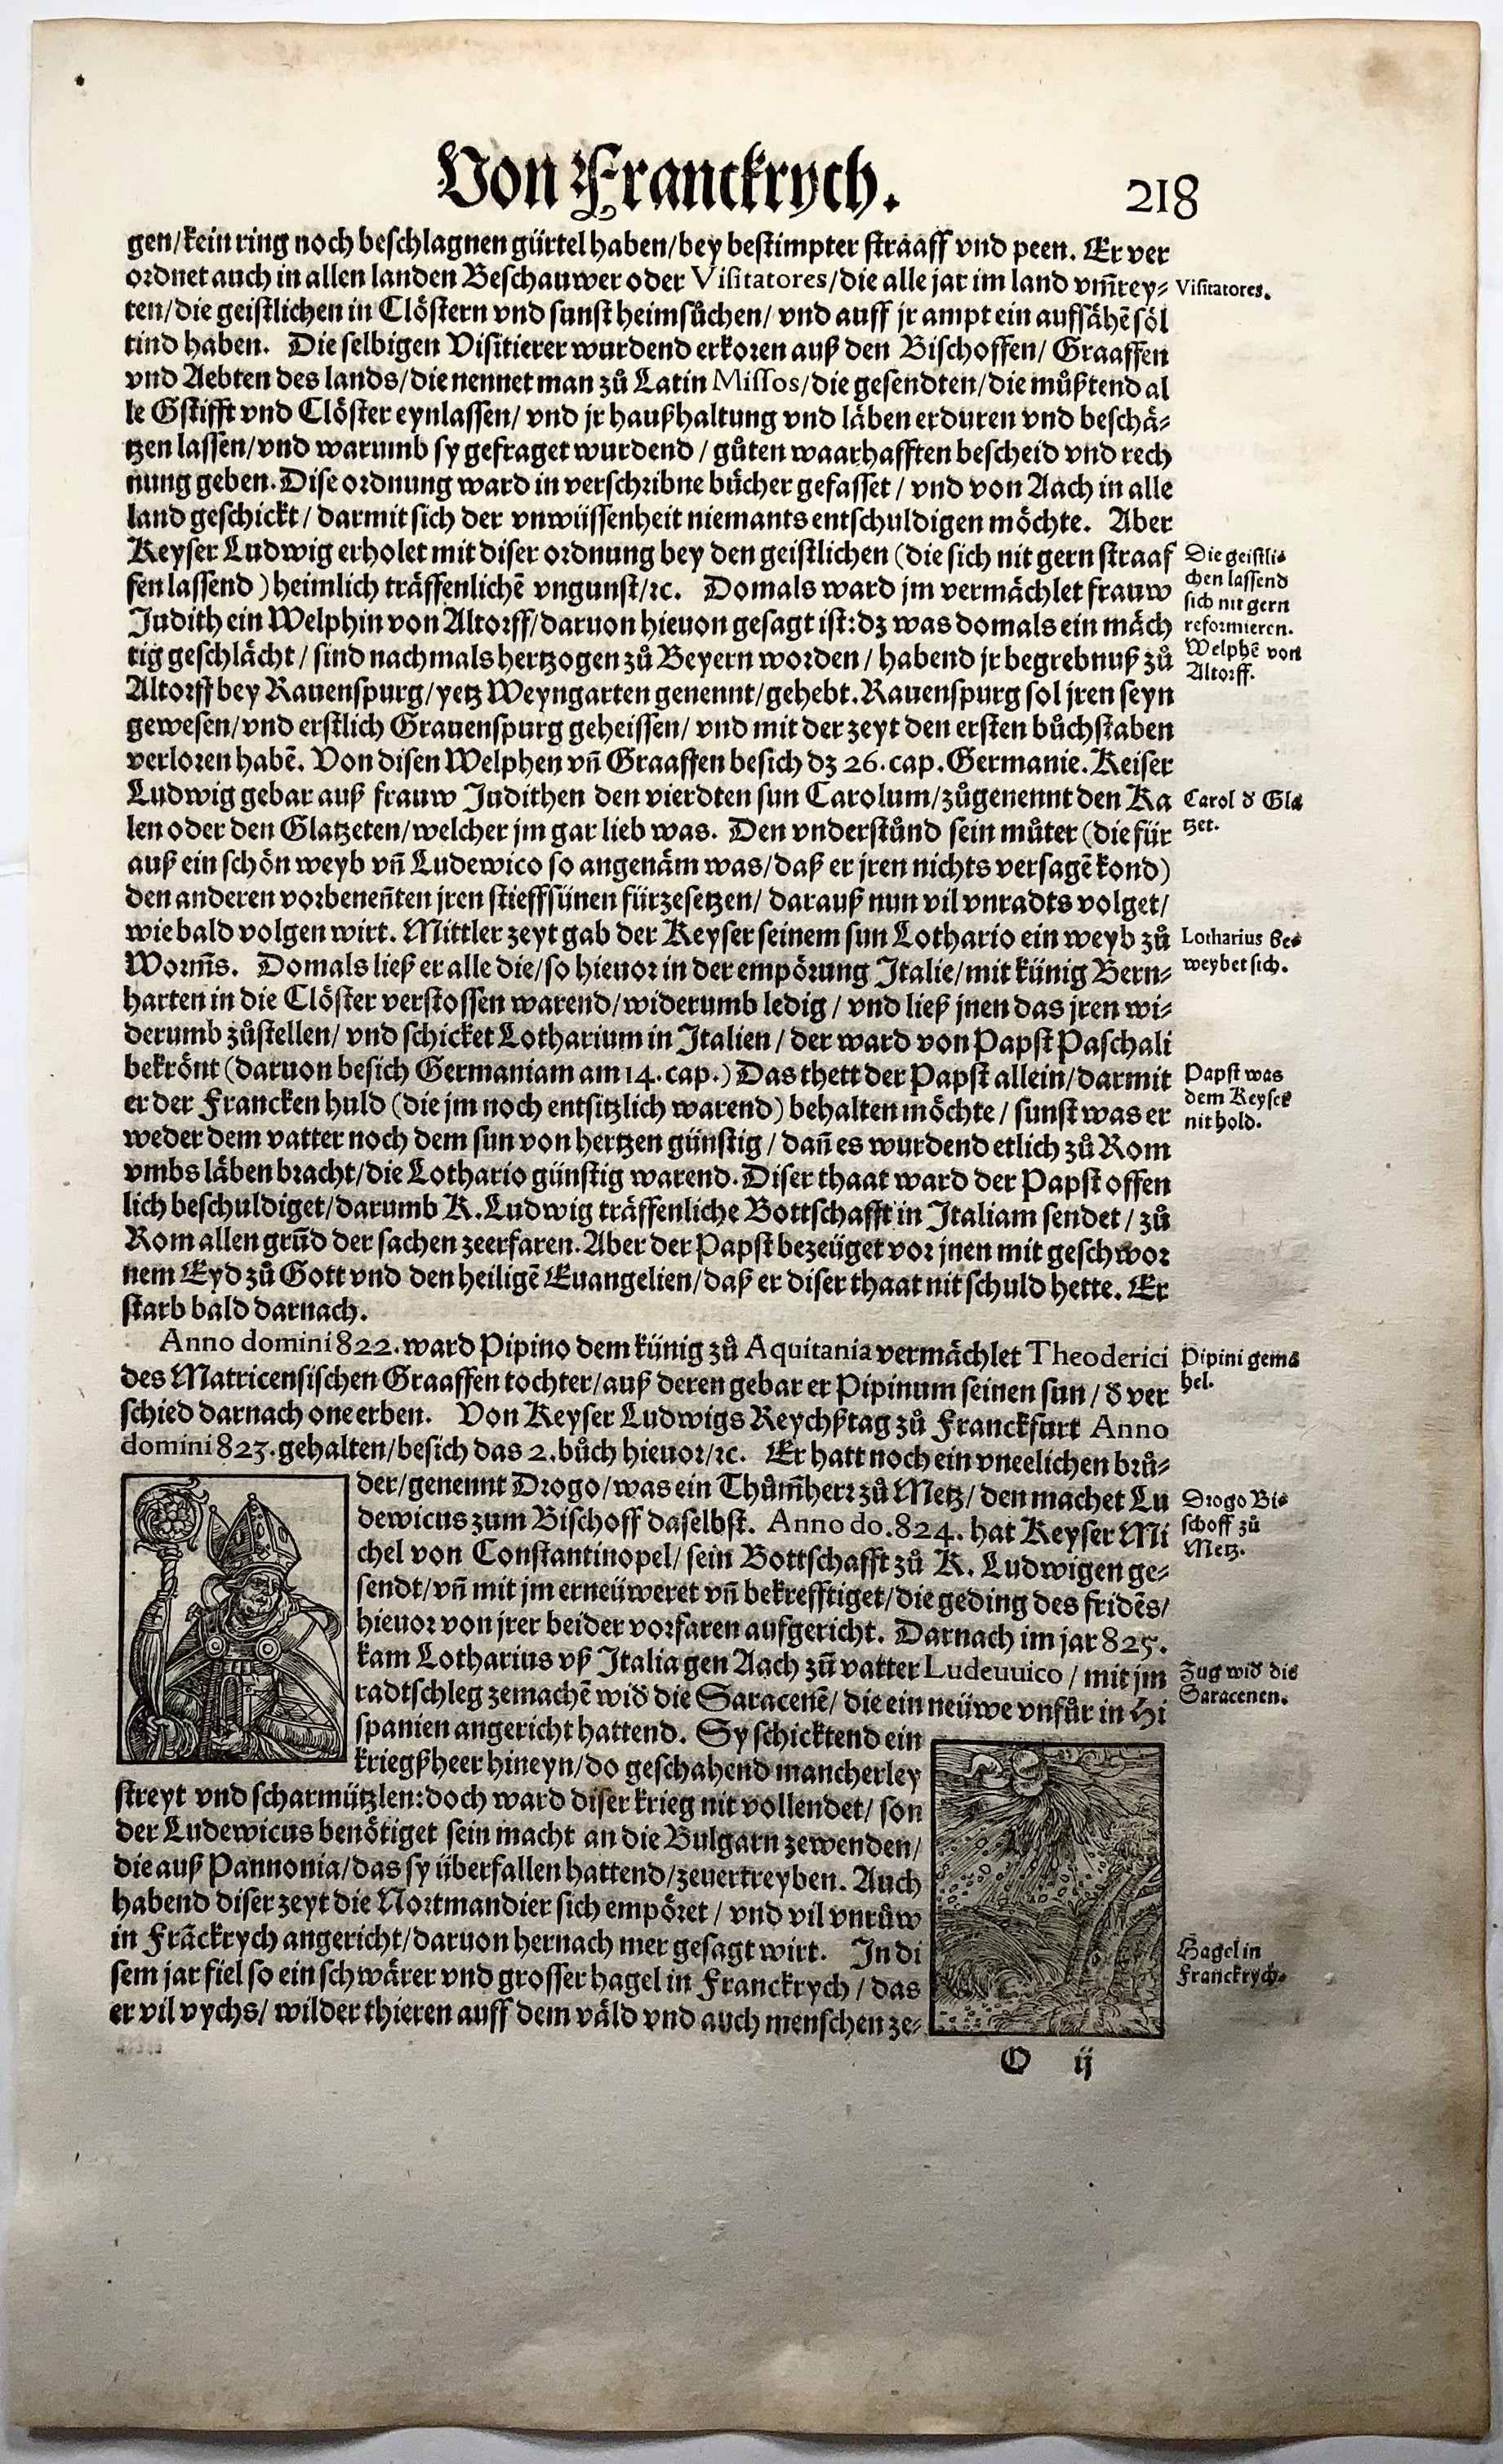 Von Franckrych.
218
gen/kein ring noch beschlagnen gürtel haben/bey bestimpter straaff vnd peen. Er ver
ordnet auch in allen landen Beschauwer oder Visitatores/die alle jar im land vm̃rey⸗
Visitatores.
ten/die geistlichen in Clöstern vnd sunst heimsůchen/ vnd auff jr ampt ein aufsähẽ söl
tind haben. Die selbigen Visitierer wurdend erkoren auß den Bischoffen/ Graaffen
vnd Aebten des lands/die nennet man zů Latin Missos/die gesendten/die můßtend al
le Gstifft vnd Clöster eynlassen/ vnd jr haußhaltung vnd läben erduren vnd beschä⸗
tzen lassen/vnd warumb sy gefraget wurdend / gůten waarhafften bescheid vnd rech
nung geben. Dise ordnung ward in verschribne bücher gefasset / vnd von Aach in alle
land geschickt / darmit sich der vnwüssenheit niemants entschuldigen möchte. Aber
Keyser Ludwig erholet mit diser ordnung bey den geistlichen (die sich nit gern straaf
fen lassend ) heimlich träffenlichẽ vngunst/ꝛc. Domals ward jm vermächlet frauw
Judith ein Welphin von Altorff/daruon hieuon gesagt ist: dz was domals ein mäch
tig geschlächt / sind nachmals hertzogen zů Beyern worden / habend jr begrebnuß zů
Die geistli⸗
chen lassend
sich nit gern
reformieren.
Welphẽ von
Altorff.
Altorff bey Rauenspurg/yetz Weyngarten genennt/gehebt. Rauenspurg sol jren seyn
gewesen/vnd erstlich Grauenspurg geheissen/ vnd mit der zeyt den ersten bůchstaben
verloren habẽ. Von disen Welphen vñ Graaffen besich dz 26. cap. Germanie. Keiser
Ludwig gebar auß frauw Judithen den vierdten sun Carolum/zůgenennt den Ka
len oder den Glatzeten/welcher jm gar lieb was. Den vnderstůnd sein můter (die für
Carol d̕ Gla
tzet.
auß ein schön weyb vñ Ludewico so angenäm was/daß er jren nichts versagẽ kond)
den anderen vorbeneñten jren stieffsünen fürzesetzen/ darauß nun vil vnradts volget/
wie bald volgen wirt. Mittler zeyt gab der Keyser seinem sun Lothario ein weyb zů
Worm̃s. Domals ließ er alle die/so hieuor in der empörung Italie/mit künig Bern⸗
Lotharius be⸗
weybet sich.
harten in die Clöster verstossen warend/widerumb ledig / vnd ließ jnen das jren wi⸗
derumb zůstellen/ vnd schicket Lotharium in Italien / der ward von Papst Paschali
bekrönt (daruon besich Germaniam am 14. cap.) Das thett der Papst allein/darmit
er der Francken huld (die jm noch entsitzlich warend) behalten möchte / sunst was er
weder dem vatter noch dem sun von hertzen günstig / dañ es wurdend etlich zů Rom
Papst was
dem Keyser
nit hold.
vmbs läben bracht/die Lothario günstig warend. Diser thaat ward der Papst offen
lich beschuldiget/darumb K. Ludwig träffenliche Bottschafft in Italiam sendet / zů
Rom allen grũd der sachen zeerfaren. Aber der Papst bezeüget vor jnen mit geschwor
nem Eyd zů Gott vnd den heiligẽ Euangelien/daß er diser thaat nit schuld hette. Er
starb bald darnach.
Anno domini 822. ward Pipino dem künig zů Aquitania vermächlet Theoderici
des Matricensischen Graaffen tochter/auß deren gebar er Pipinum seinen sun / d̕ ver
Pipini gema
hel.
schied darnach one erben. Von Keyser Ludwigs Reychßtag zů Franckfurt Anno
domini 823. gehalten/besich das 2. bůch hieuor/ꝛc. Er hatt noch ein vneelichen brů⸗
der/genennt Drogo/was ein Thům̃herr zů Metz/ den machet Lu
dewicus zum Bischoff daselbst. Anno do. 824. hat Keyser Mi
chel von Constantinopel/ sein Bottschafft zů K. Ludwigen ge⸗
Drogo Bi⸗
schoff zů
Metz.
sendt/vñ mit jm erneüweret vñ bekrefftiget/die geding des fridẽs/
hieuor von jrer beider vorfaren aufgericht. Darnach im jar 825.
kam Lotharius vß Italia gen Aach zũ vatter Ludeuuico / mit jm
radtschleg zemachẽ wid̕ die Saracenẽ/ die ein neüwe vnfůr in Hi
Zug wid̕ die
Saracenen.
spanien angericht hattend. Sy schicktend ein
kriegßheer hineyn/do geschahend mancherley
streyt vnd scharmützlen: doch ward diser krieg nit vollendet/ son
der Ludewicus benötiget sein macht an die Bulgarn zewenden/
die auß Pannonia/das sy überfallen hattend/zeuertreyben. Auch
habend diser zeyt die Nortmandier sich empöret / vnd vil vnrůw
in Frãckrych angericht/daruon hernach mer gesagt wirt. In di
sem jar fiel so ein schwärer vnd grosser hagel in Franckrych / das
er vil vychs/ wilder thieren auff dem väld vnd auch menschen ze⸗
Hagel in
Franckrych.
O ij